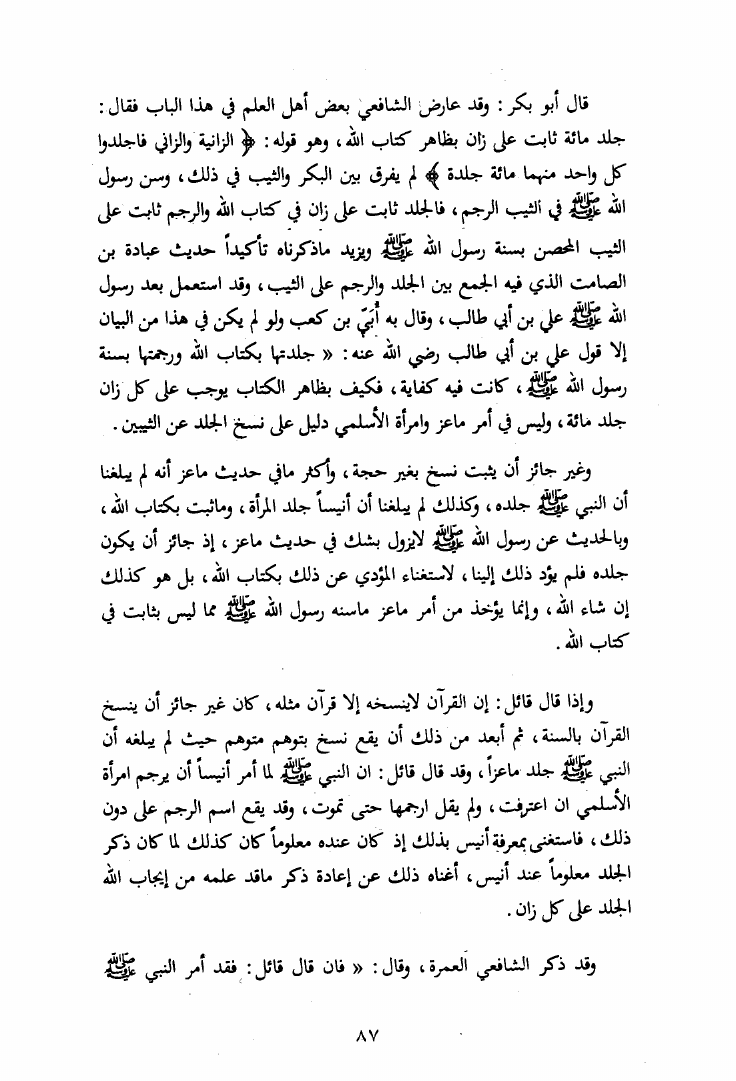 قال أبو بكر : وقد عارض الشافعي بعض أهل العلم في هذا الباب فقال :
جلد مائة ثابت على زان بظاهر كتاب الله ، وهو قوله : ﴿ الزانية والزاني فاجلدوا
كل واحد منهما مائة جلدة ﴾ لم يفرق بين البكر والثيب في ذلك ، وسن رسول
الله ﷺ في الثيب الرجم ، فالجلد ثابت على زان في كتاب الله والرجم ثابت على
الثيب المحصن بسنة رسول الله ﷺ ويزيد ماذكرناه تأكيداً حديث عبادة بن
الصامت الذي فيه الجمع بين الجلد والرجم على الثيب ، وقد استعمل بعد رسول
الله ﷺ علي بن أبي طالب ، وقال به أُبَيّ بن كعب ولو لم يكن في هذا من البيان
إلا قول علي بن أبي طالب رضي الله عنه : « جلدتها بكتاب الله ورجمتها بسنة
رسول الله ﷺ ، كانت فيه كفاية ، فكيف بظاهر الكتاب يوجب على كل زان
جلد مائة ، وليس في أمر ماعز وامرأة الأسلمي دليل على نسخ الجلد عن الثيبين .
وغير جائز أن يثبت نسخ بغير حجة ، وأكثر مافي حديث ماعز أنه لم يبلغنا
أن النبي ﷺ جلده ، وكذلك لم يبلغنا أن أنيساً جلد المرأة ، وماثبت بكتاب الله ،
وبالحديث عن رسول الله ﷺ لايزول بشك في حديث ماعز ، إذ جائز أن يكون
جلده فلم يؤد ذلك إلينا ، لاستغناء المؤدي عن ذلك بكتاب الله ، بل هو كذلك
إن شاء الله ، وإنما يؤخذ من أمر ماعز ماسنه رسول الله ﷺ مما ليس بثابت في
كتاب الله .
وإذا قال قائل : إن القرآن لاينسخه إلا قرآن مثله ، كان غير جائز أن ينسخ
القرآن بالسنة ، ثم أبعد من ذلك أن يقع نسخ بتوهم متوهم حيث لم يبلغه أن
النبي ﷺ جلد ماعزاً ، وقد قال قائل : ان النبي ﷺ لما أمر أنيساً أن يرجم امرأة
الأسلمي ان اعترفت ، ولم يقل ارجمها حتى تموت ، وقد يقع اسم الرجم على دون
ذلك ، فاستغنى بمعرفة أنيس بذلك إذ كان عنده معلوماً كان كذلك لما كان ذكر
الجلد معلوماً عند أنيس ، أغناه ذلك عن إعادة ذكر ماقد علمه من إيجاب الله
الجلد على كل زان .
وقد ذكر الشافعي العمرة ، وقال : « فان قال قائل : فقد أمر النبي ﷺ
٨٧